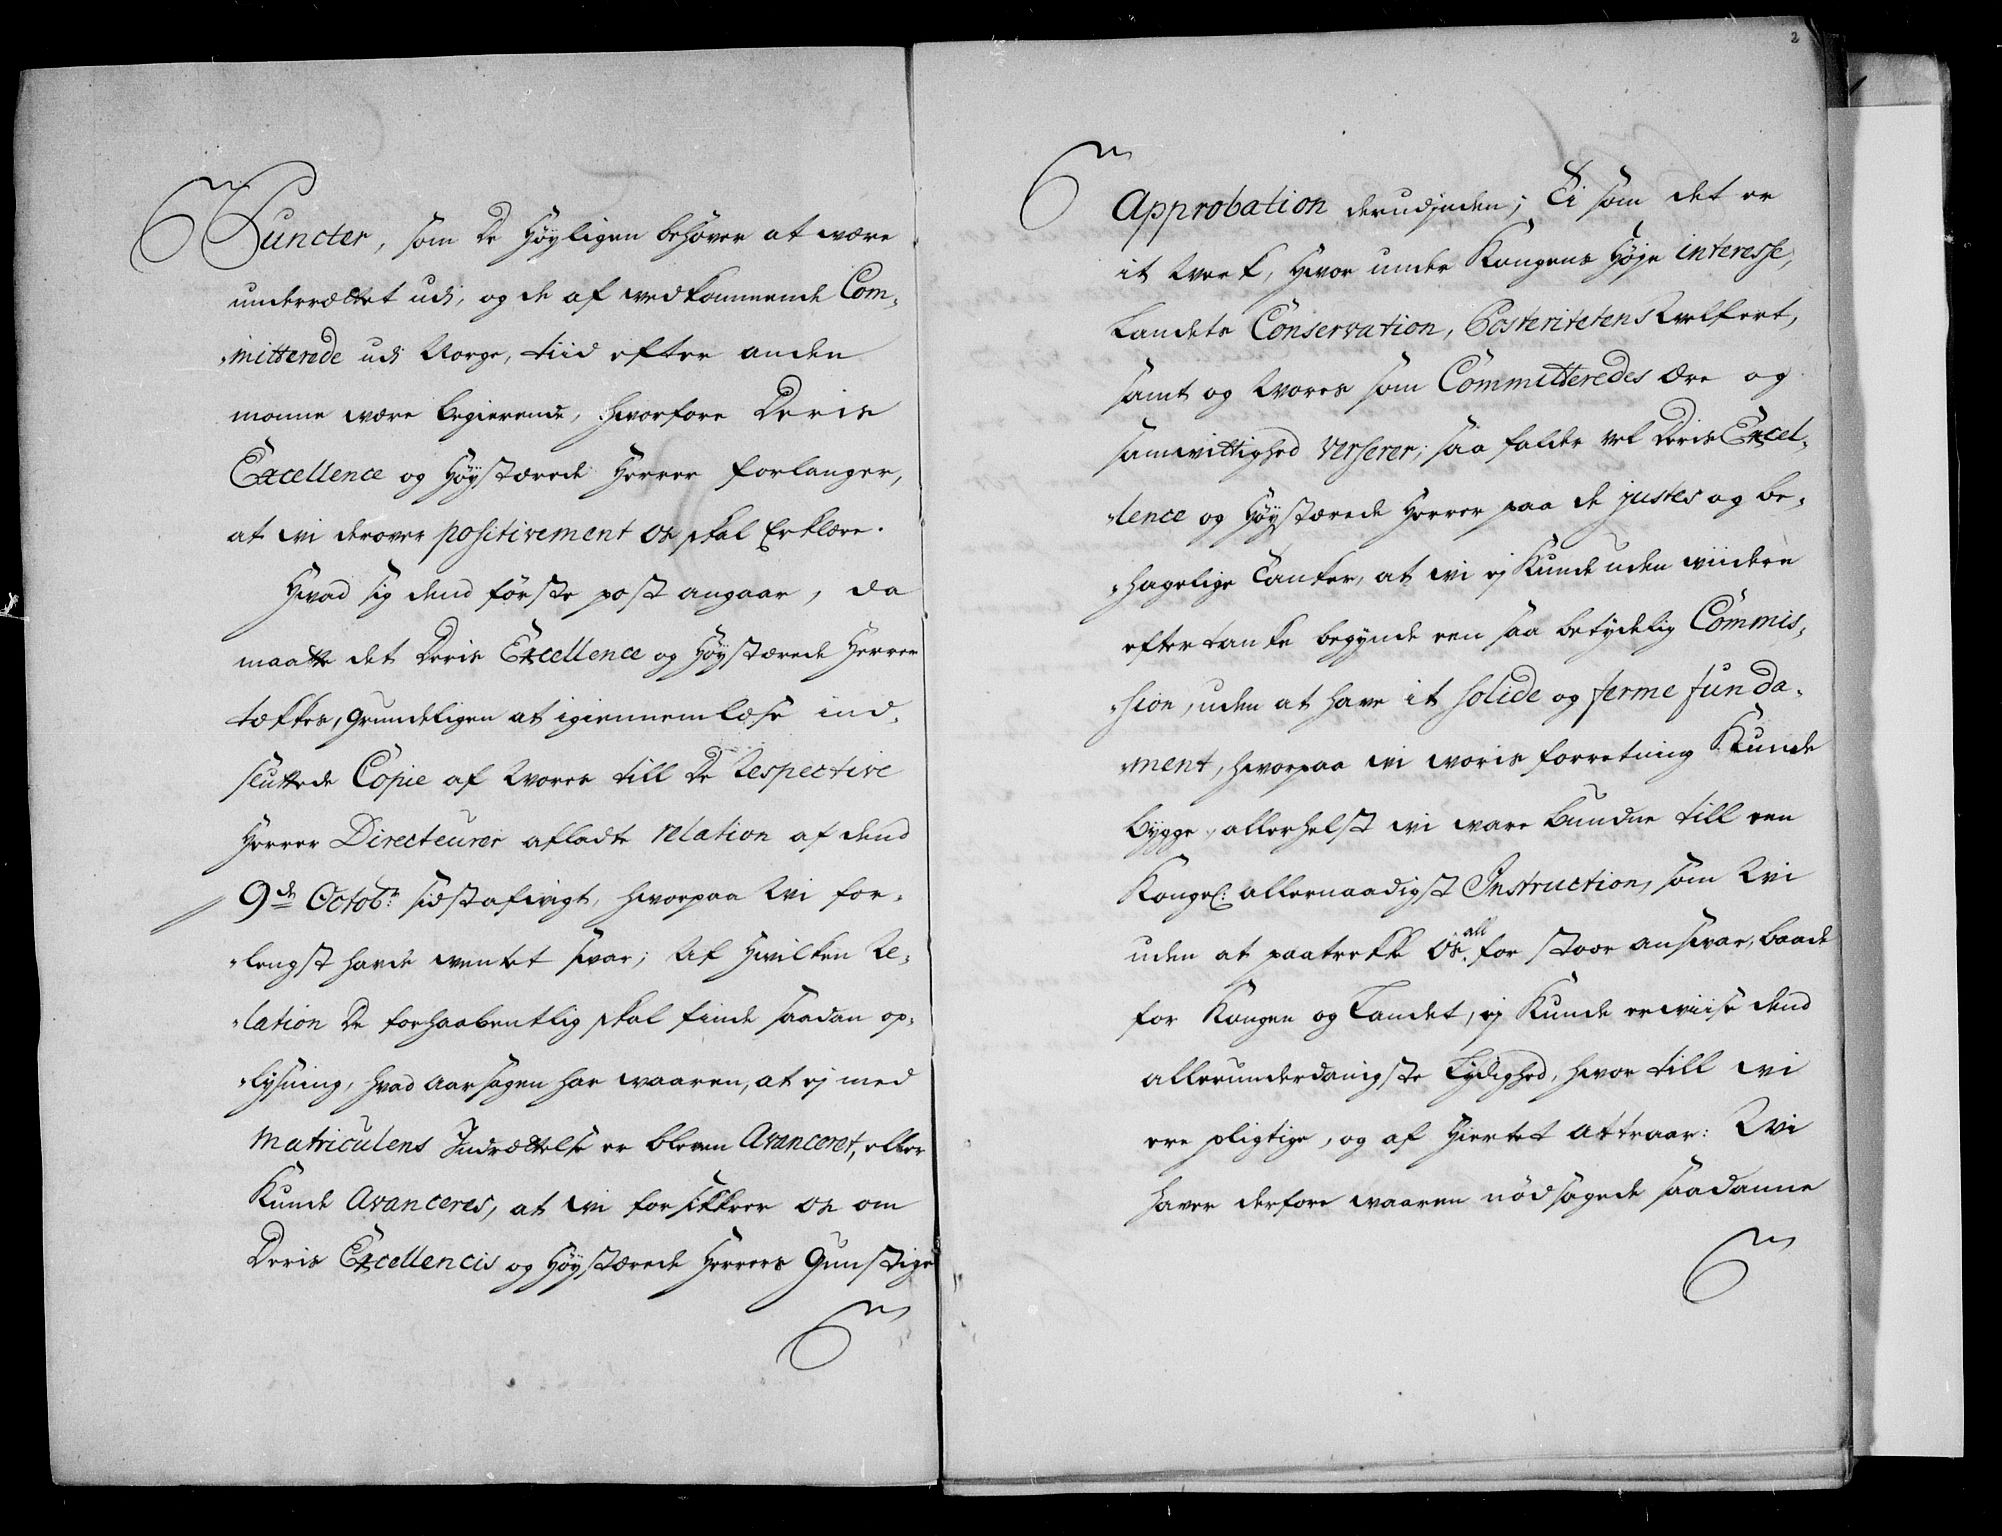 Puncter, som De Høyligen behøver at være
underrættet udi, og de af vedkommende Com„
„mitterede udi Norge, tiid efter anden
monne være begierende, hvorfore Deris
Excellence og Høystærede Herrer forlanger,
at wi derover positivement os skal Erklære.
Hvad sig dend første post angaar, da
maatte det Deris Excellence og Høystærede Herrer
tækkes, grundeligen at igiennemlæse ind„
sluttede Copie af Wores till De Respective
Herrer Directeurer afladte relation af dend
9de Octobr: sidstafvigt, hvorpaa Wi for„
„lengst havde wentet svar; Af Hvilken Re„
„lation De forhaabentlig skal finde saadan op„
„lysning, hvad aarsagen har waaren, at ej med
Matriculens Indrættelse er bleven Avanceret, eller
Kunde Avanceres, at wi forsikkrer os om
Deris Excellencis og Høystærede Herrers Gunstige
2
Approbation derudjnden; Ti som det er
it Werk, Hvor under Kongens Høje interesse,
Landets Conservation, Posteritetens Welfert,
samt og Wores som Committeredes Ære og
samvittighed verserer; saa falder vel Deris Excel„
„lence og Høystærede Herrer paa de justes og be„
„hagelige Tanker, at wi ej Kunde uden wiidere
eftertanke begynde een saa betydelig Commis„
„sion, uden at have it solide og ferme funda„
„ment, hvorpaa wi woris forretning Kunde
bygge, allerhelst wi ware bundne till een
Kongel: allernaadigst Instruction, som Wi
uden at paatrekke os alt for stoor ansvar, baade
for Kongen og Landet, ej Kunde erwiise dend
allerunderdanigste Lydighed, hvor till wi
ere pligtige, og af Hiertet attraar: Wi
haver derfore waaren nødsagede saadanne